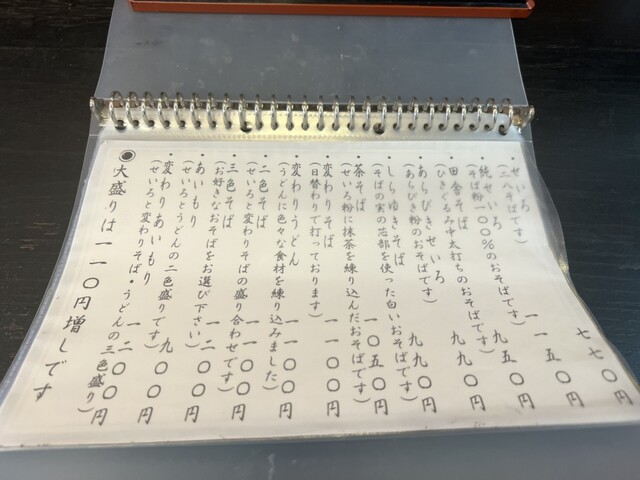 ・せいろ
(二八そばです) 七七〇円
・純せいろ
(そば粉一〇〇%のおそばです) 一一五〇円
・田舎そば
(ひきぐるみ中太打ちのおそばです) 九五〇円
・あらびきせいろ
(あらびき粉のおそばです) 九九〇円
・しらゆきそば
(そばの実の芯部を使った白いおそばです) 九九〇円
・茶そば
(せいろ粉に抹茶を練り込んだおそばです) 一〇五〇円
・変わりそば
(日替わりで打っております) 一一〇〇円
・変わりうどん
(うどんに色々な食材を練り込みました) 一一〇〇円
・二色そば
(せいろと変わりそばの盛り合わせです) 一一〇〇円
・三色そば
(お好きなおそばをお選び下さい) 一二〇〇円
・あいもり
(せいろとうどんの二色盛りです) 九〇〇円
・変わりあいもり
(せいろと変わりそば・うどんの三色盛り) 一二〇〇円
◉大盛りは一一〇円増しです